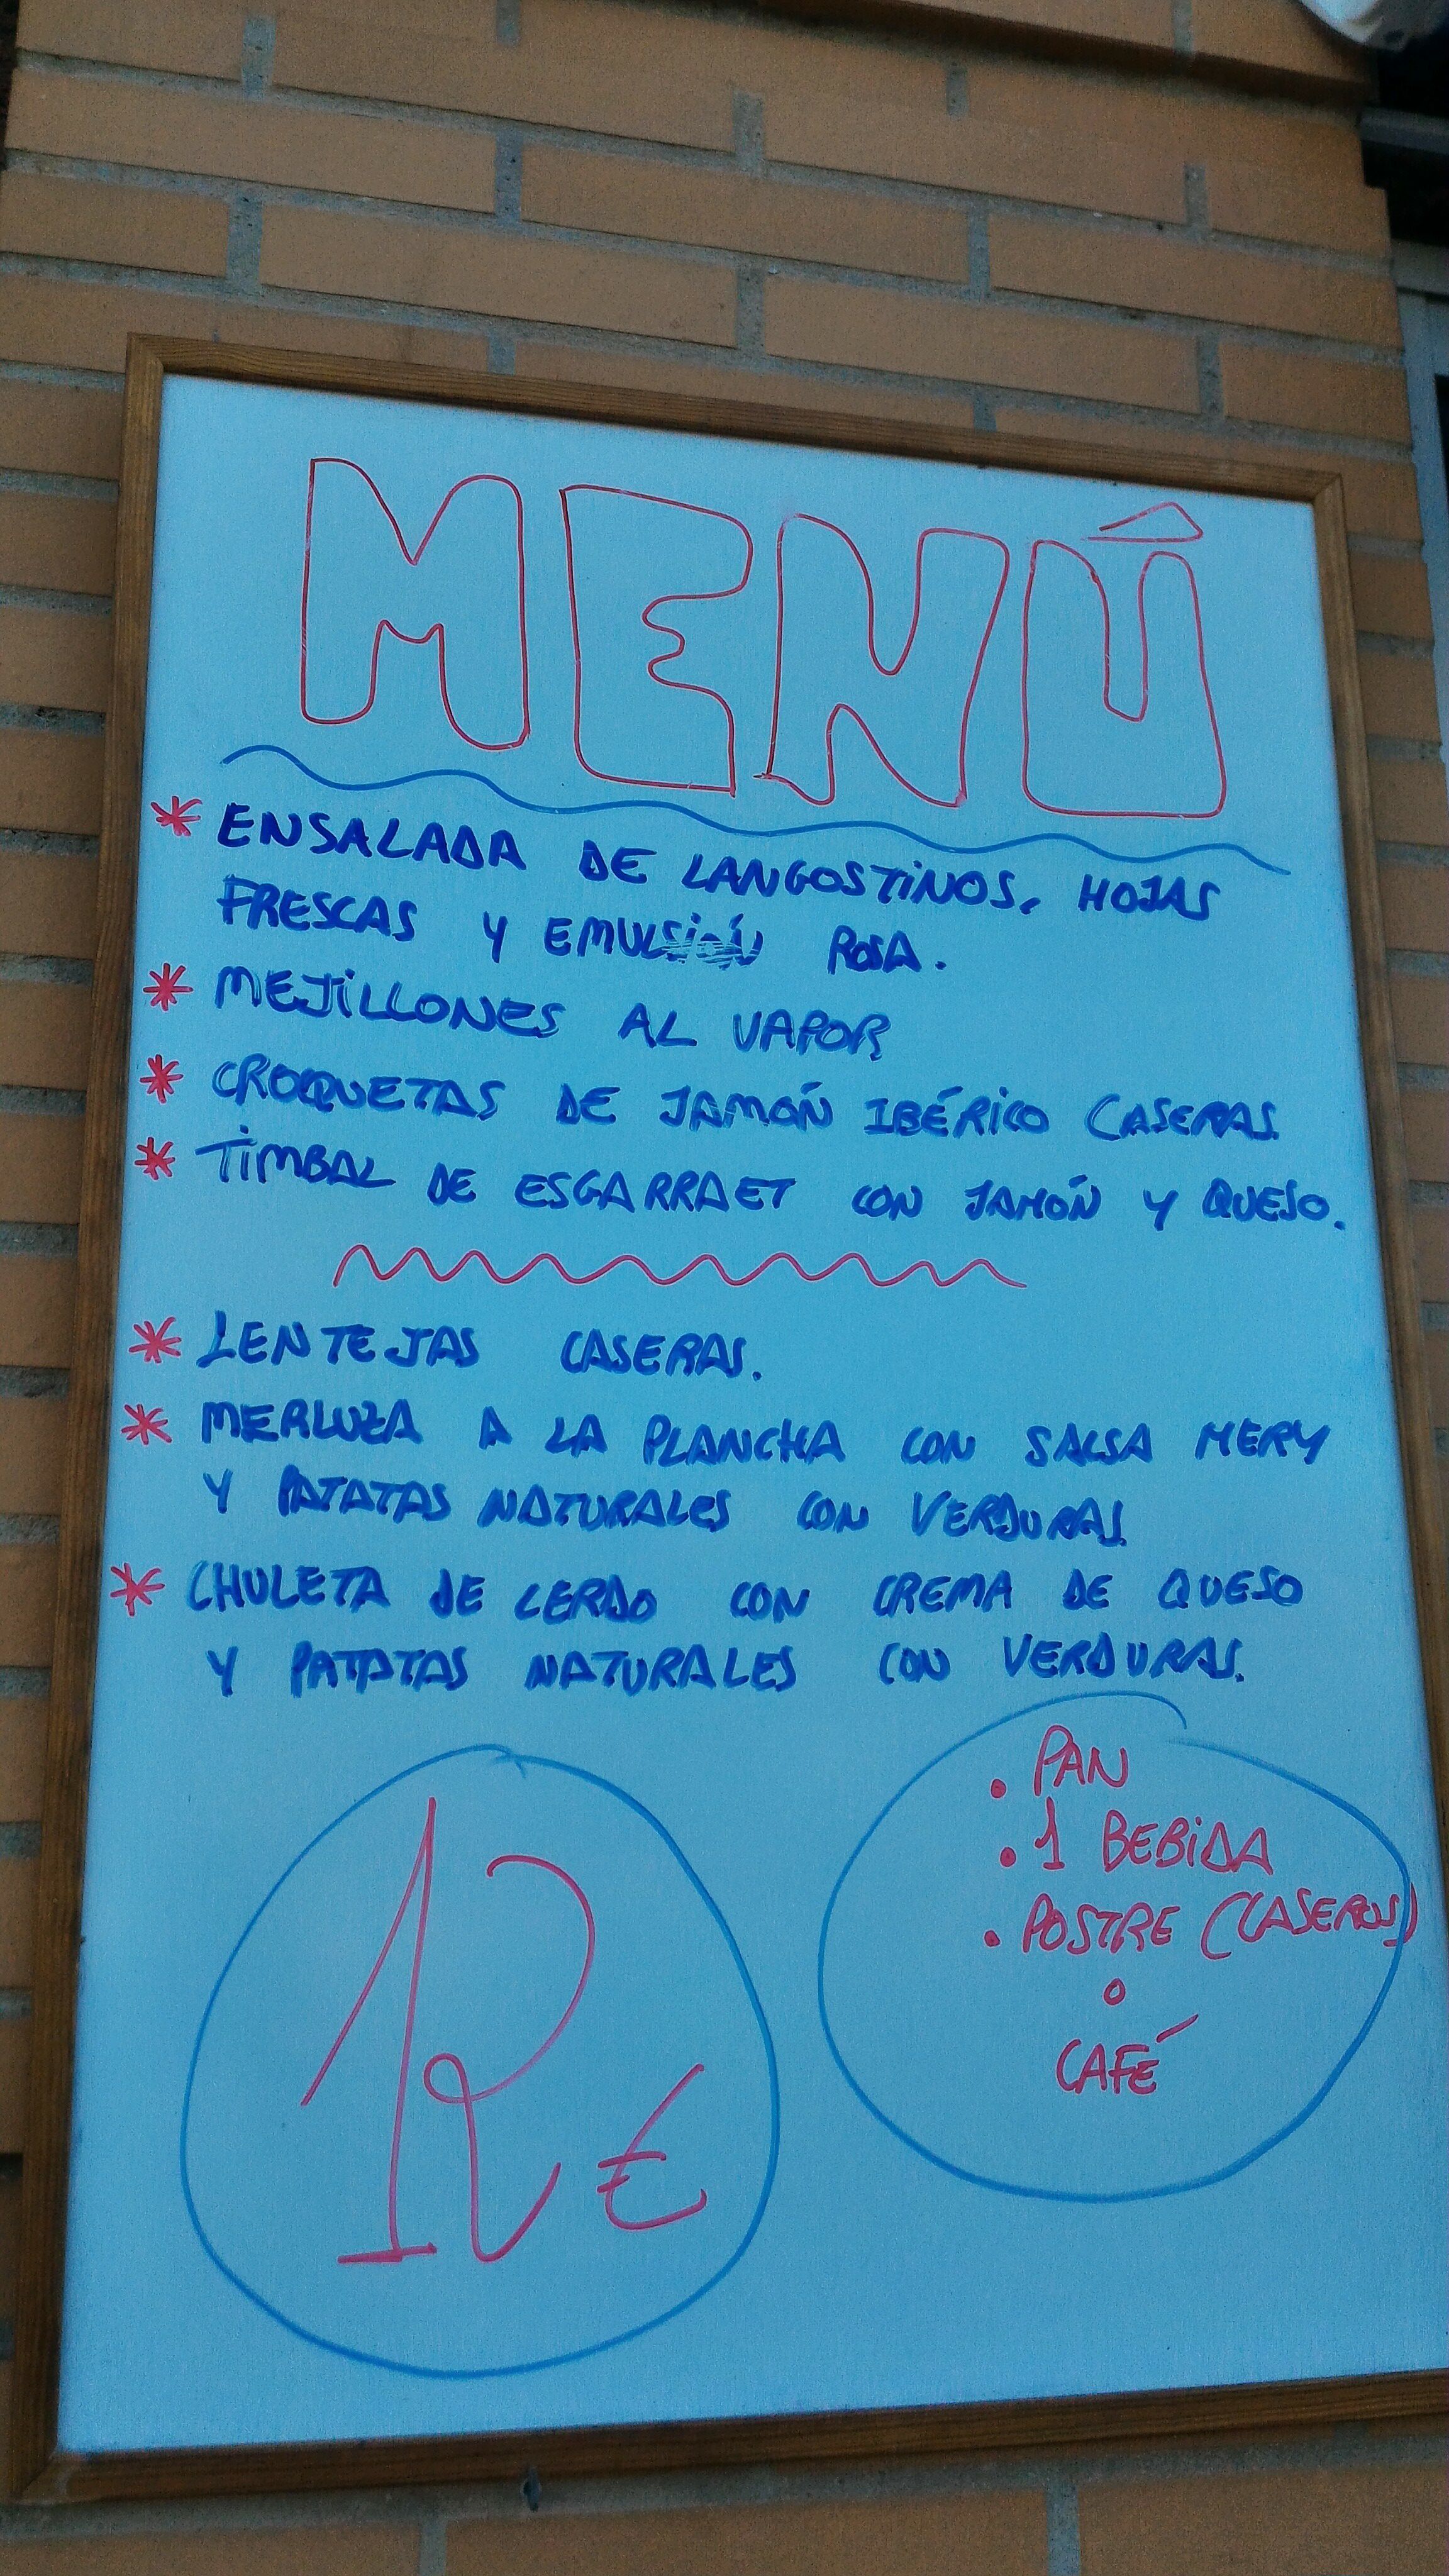 MENÚ
* ENSALADA DE LANGOSTINOS, HOJAS
FRESCAS Y EMULSIÓN ROSA.
* MEJILLONES AL VAPOR
* CROQUETAS DE JAMÓN IBÉRICO CASERAS
* TIMBAL DE ESGARRAET CON JAMÓN Y QUESO.
* LENTEJAS CASERAS.
* MERLUZA A LA PLANCHA CON SALSA MERY
Y PATATAS NATURALES CON VERDURAS
* CHULETA DE CERDO CON CREMA DE QUESO
Y PATATAS NATURALES CON VERDURAS.
12 €
• PAN
• 1 BEBIDA
• POSTRE (CASEROS)
O
CAFÉ